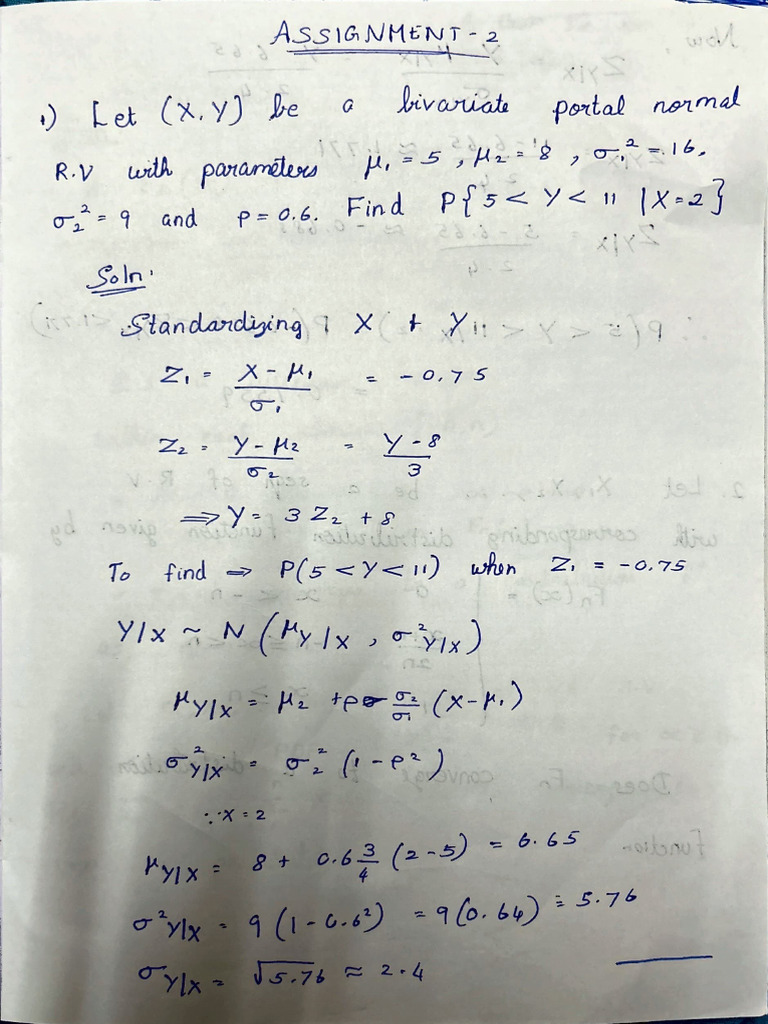 ASSIGNMENT - 2
1) Let (X, Y) be a bivariate portal normal
R.V with parameters μ₁ = 5, μ₂ = 8, σ₁² = 16,
σ₂² = 9 and ρ = 0.6. Find P{5 < Y < 11 | X = 2}
Soln:
Standardizing X + Y
Z₁ = (X - μ₁)/σ₁ = -0.75
Z₂ = (Y - μ₂)/σ₂ = (Y - 8)/3
⟹ Y = 3 Z₂ + 8
To find ⟹ P(5 < Y < 11) when Z₁ = -0.75
Y|X ~ N (μ_Y|X, σ²_Y|X)
μ_Y|X = μ₂ + ρ σ₂/σ₁ (X - μ₁)
σ²_Y|X = σ₂² (1 - ρ²)
∵ X = 2
μ_Y|X = 8 + 0.6 3/4 (2 - 5) = 6.65
σ²_Y|X = 9 (1 - 0.6²) = 9 (0.64) = 5.76
σ_Y|X = √5.76 ≈ 2.4